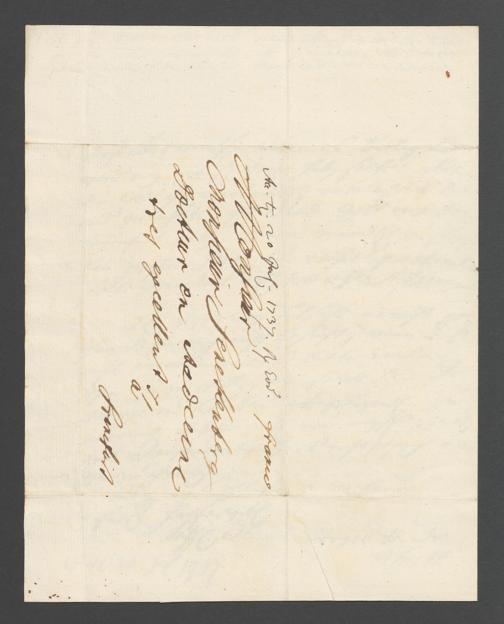 20 July. 1737. franco
A Monsieur
Monsieur Senckenberg
Docteur en Medecine
tres excellent
a
Francfort